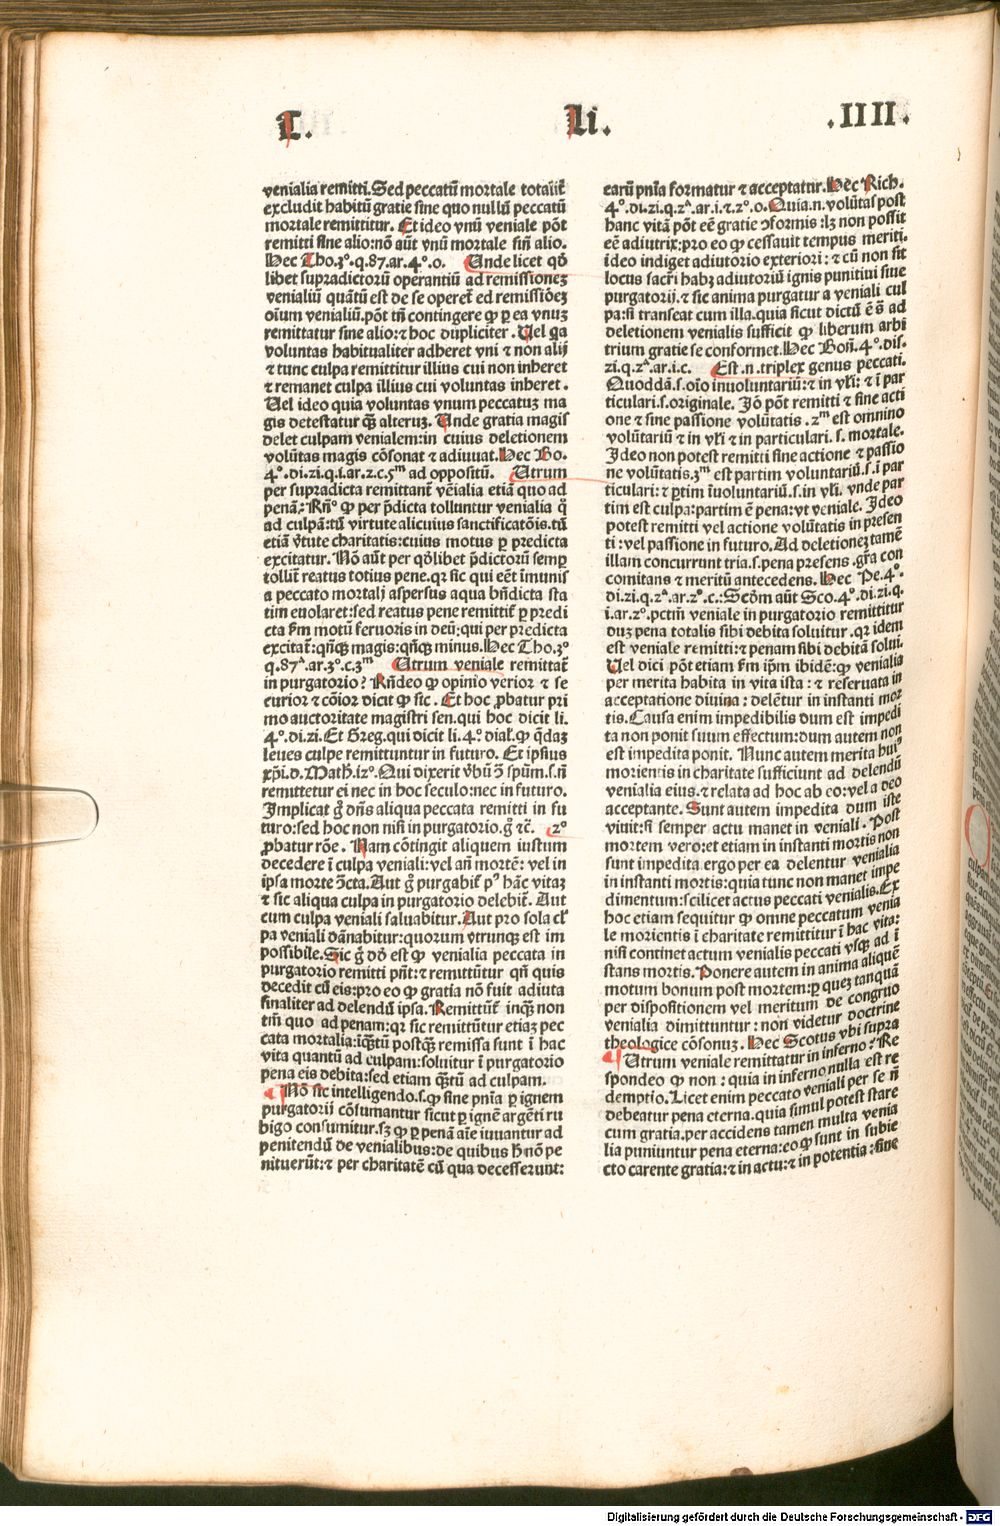 L. Li. .IIII.
venialia remitti. Sed peccatū mortale totalit̄
excludit habitū gratie sine quo nullū peccatū
mortale remittitur. Et ideo vnū veniale pōt
remitti sine alio: nō aūt vnū mortale siñ alio.
Hec Tho. 3º. q. 87. ar. 4º. o. Unde licet qd̄
libet supradictorū operantiū ad remissionez
venialiū quātū est de se operet̄ ed remissiōez
oīum venialiū. pōt tñ contingere ꝙ ꝑ ea vnuz
remittatur sine alio: ⁊ hoc dupliciter. Uel qa
voluntas habitualiter adheret vni ⁊ non alij
⁊ tunc culpa remittitur illius cui non inheret
⁊ remanet culpa illius cui voluntas inheret.
Uel ideo quia voluntas vnum peccatuz ma
gis detestatur qȝ alteruz. Unde gratia magis
delet culpam venialem: in cuius deletionem
volūtas magis cōsonat ⁊ adiuuat. Hec Bo.
4º. di. zi. q. i. ar. 2. c. 5m ad oppositū. Utrum
per supradicta remittant̄ vēialia etiā quo ad
penā? Rñº ꝙ per p̄dicta tolluntur venialia q̄
ad culpā: tū virtute alicuius sanctificatōis. tū
etiā v̄tute charitatis: cuius motus ꝑ predicta
excitatur. Nō aūt per qd̄libet p̄dictorū semꝑ
tollit̄ reatus totius pene. qꝛ sic qui eēt īmunis
a peccato mortali aspersus aqua bñdicta sta
tim euolaret: sed reatus pene remittit̄ ꝑ predi
cta ẜm motū feruoris in deū: qui per predicta
excitat̄: qñqȝ magis: qñqȝ minus. Hec Tho. 3º
q. 87ª. ar. 3º. c. 3m Utrum veniale remittat̄
in purgatorio? Rñdeo ꝙ opinio verior ⁊ se
curior ⁊ cōior dicit ꝙ sic. Et hoc ꝓbatur pri
mo auctoritate magistri sen. qui hoc dicit li.
4º. di. zi. Et Greg. qui dicit li. 4º dial. ꝙ q̄daz
leues culpe remittuntur in futuro. Et ipsius
xp̄i. d. Math. 12º. Qui dixerit v̄bū ꝯ̄ spūm. s. ñ
remittetur ei nec in hoc seculo: nec in futuro.
Implicat g̊ dñs aliqua peccata remitti in fu
turo: sed hoc non nisi in purgatorio. g̊ ⁊c̄. 2º
ꝓbatur rōe. Nam cōtingit aliquem iustum
decedere ī culpa veniali: vel añ mortē: vel in
ipsa morte ꝯ̄cta. Aut g̊ purgabit̄ pº hāc vitaz
⁊ sic aliqua culpa in purgatorio delebit̄. Aut
cum culpa veniali saluabitur. Aut pro sola cl̄
pa veniali dānabitur: quorum vtrunqȝ est im
possibile. Sic g̊ dd̄ est ꝙ venialia peccata in
purgatorio remitti pñt: ⁊ remittūtur qñ quis
decedit cū eis: pro eo ꝙ gratia nō fuit adiuta
finaliter ad delendū ipsa. Remittūt̄ inqȝ non
tm̄ quo ad penam: qꝛ sic remittūtur etiaz pec
cata mortalia: īqȝtū postqȝ remissa sunt ī hac
vita quantū ad culpam: soluitur ī purgatorio
pena eis debita: sed etiam qȝtū ad culpam.
¶ Nō sic intelligendo. s. ꝙ sine pnīa ꝑ ignem
purgatorij cōsumantur sicut ꝑ ignē argēti ru
bigo consumitur. sȝ ꝙ ꝑ penā aīe iuuantur ad
penitendū de venialibus: de quibus h̄ nō pe
nituerūt: ⁊ per charitatē cū qua decesserunt:
earū pnīa formatur ⁊ acceptatur. Hec Rich.
4º. di. zi. q. 2ª. ar. i. ⁊. 2º. o. Quia. n. volūtas post
hanc vitā pōt eē gratie ꝯformis: lȝ non possit
eē adiutrix: pro eo ꝙ cessauit tempus meriti.
ideo indiget adiutorio exteriori: ⁊ cū non sit
locus sacr̄i habȝ adiutoriū ignis punitiui siue
purgatorij. ⁊ sic anima purgatur a veniali cul
pa: si transeat cum illa. quia sicut dictū ē s̄ ad
deletionem venialis sufficit ꝙ liberum arbi
trium gratie se conformet. Hec Boñ. 4º. dis.
zi. q. 2ª. ar. i. c. Est. n. triplex genus peccati.
Quoddā. s. oīo inuoluntariū: ⁊ in vl̄i: ⁊ ī par
ticulari. s. originale. Iō pōt remitti ⁊ sine acti
one ⁊ sine passione volūtatis. 2m est omnino
volūtariū ⁊ in vl̄i ⁊ in particulari. s. mortale.
Ideo non potest remitti sine actione ⁊ passio
ne volūtatis. 3m est partim voluntariū. s. ī par
ticulari: ⁊ ꝑtim īuoluntariū. s. in vl̄i. vnde par
tim est culpa: partim ē pena: vt veniale. Ideo
potest remitti vel actione volūtatis in presen
ti: vel passione in futuro. Ad deletionez tamē
illam concurrunt tria. s. pena presens. gr̄a con
comitans ⁊ meritū antecedens. Hec Pe. 4º.
di. zi. q. 2ª. ar. 2º. c.: Scd̄m aūt Sco. 4º. di. zi. q.
i. ar. 2º. pctm̄ veniale in purgatorio remittitur
duȝ pena totalis sibi debita soluitur. qꝛ idem
est veniale remitti: ⁊ penam sibi debitā solui.
Uel dici pōt etiam ẜm ip̄m ibidē: ꝙ venialia
per merita habita in vita ista: ⁊ reseruata in
acceptatione diuina: delētur in instanti mor
tis. Causa enim impedibilis dum est impedi
ta non ponit suum effectum: dum autem non
est impedita ponit. Nunc autem merita huiꝰ
morientis in charitate sufficiunt ad delendū
venialia eius. ⁊ relata ad hoc ab eo: vel a deo
acceptante. Sunt autem impedita dum iste
viuit: si semper actu manet in veniali. Post
mortem vero: et etiam in instanti mortis non
sunt impedita ergo per ea delentur venialia
in instanti mortis: quia tunc non manet impe
dimentum: scilicet actus peccati venialis. Ex
hoc etiam sequitur ꝙ omne peccatum venia
le morientis ī charitate remittitur ī hac vita:
nisi continet actum venialis peccati vsqȝ ad ī
stans mortis. Ponere autem in anima aliquē
motum bonum post mortem: ꝑ quez tanquā
per dispositionem vel meritum de congruo
venialia dimittuntur: non videtur doctrine
theologice cōsonuȝ. Hec Scotus vbi supra
¶ Utrum veniale remittatur in inferno? Re
spondeo ꝙ non: quia in inferno nulla est re
demptio. Licet enim peccato veniali per se ñ
debeatur pena eterna. quia simul potest stare
cum gratia. per accidens tamen multa venia
lia puniuntur pena eterna: eo ꝙ sunt in subie
cto carente gratia: ⁊ in actu: ⁊ in potentia: sine
Digitalisierung gefördert durch die Deutsche Forschungsgemeinschaft - DFG